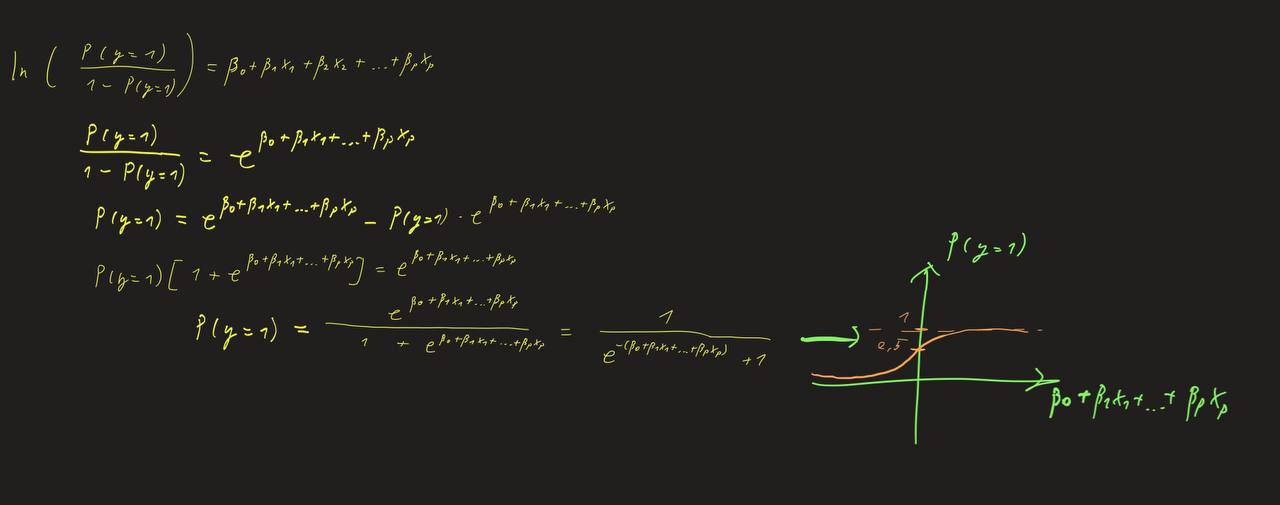 ln ( P(y=1) / 1 - P(y=1) ) = β₀ + β₁x₁ + β₂x₂ + ... + βₚxₚ
P(y=1) / 1 - P(y=1) = e^(β₀ + β₁x₁ + ... + βₚxₚ)
P(y=1) = e^(β₀ + β₁x₁ + ... + βₚxₚ) - P(y=1) · e^(β₀ + β₁x₁ + ... + βₚxₚ)
P(y=1) [ 1 + e^(β₀ + β₁x₁ + ... + βₚxₚ) ] = e^(β₀ + β₁x₁ + ... + βₚxₚ)
P(y=1) = e^(β₀ + β₁x₁ + ... + βₚxₚ) / 1 + e^(β₀ + β₁x₁ + ... + βₚxₚ) = 1 / e^-(β₀ + β₁x₁ + ... + βₚxₚ) + 1
P(y=1)
1
0,5
β₀ + β₁x₁ + ... + βₚxₚ